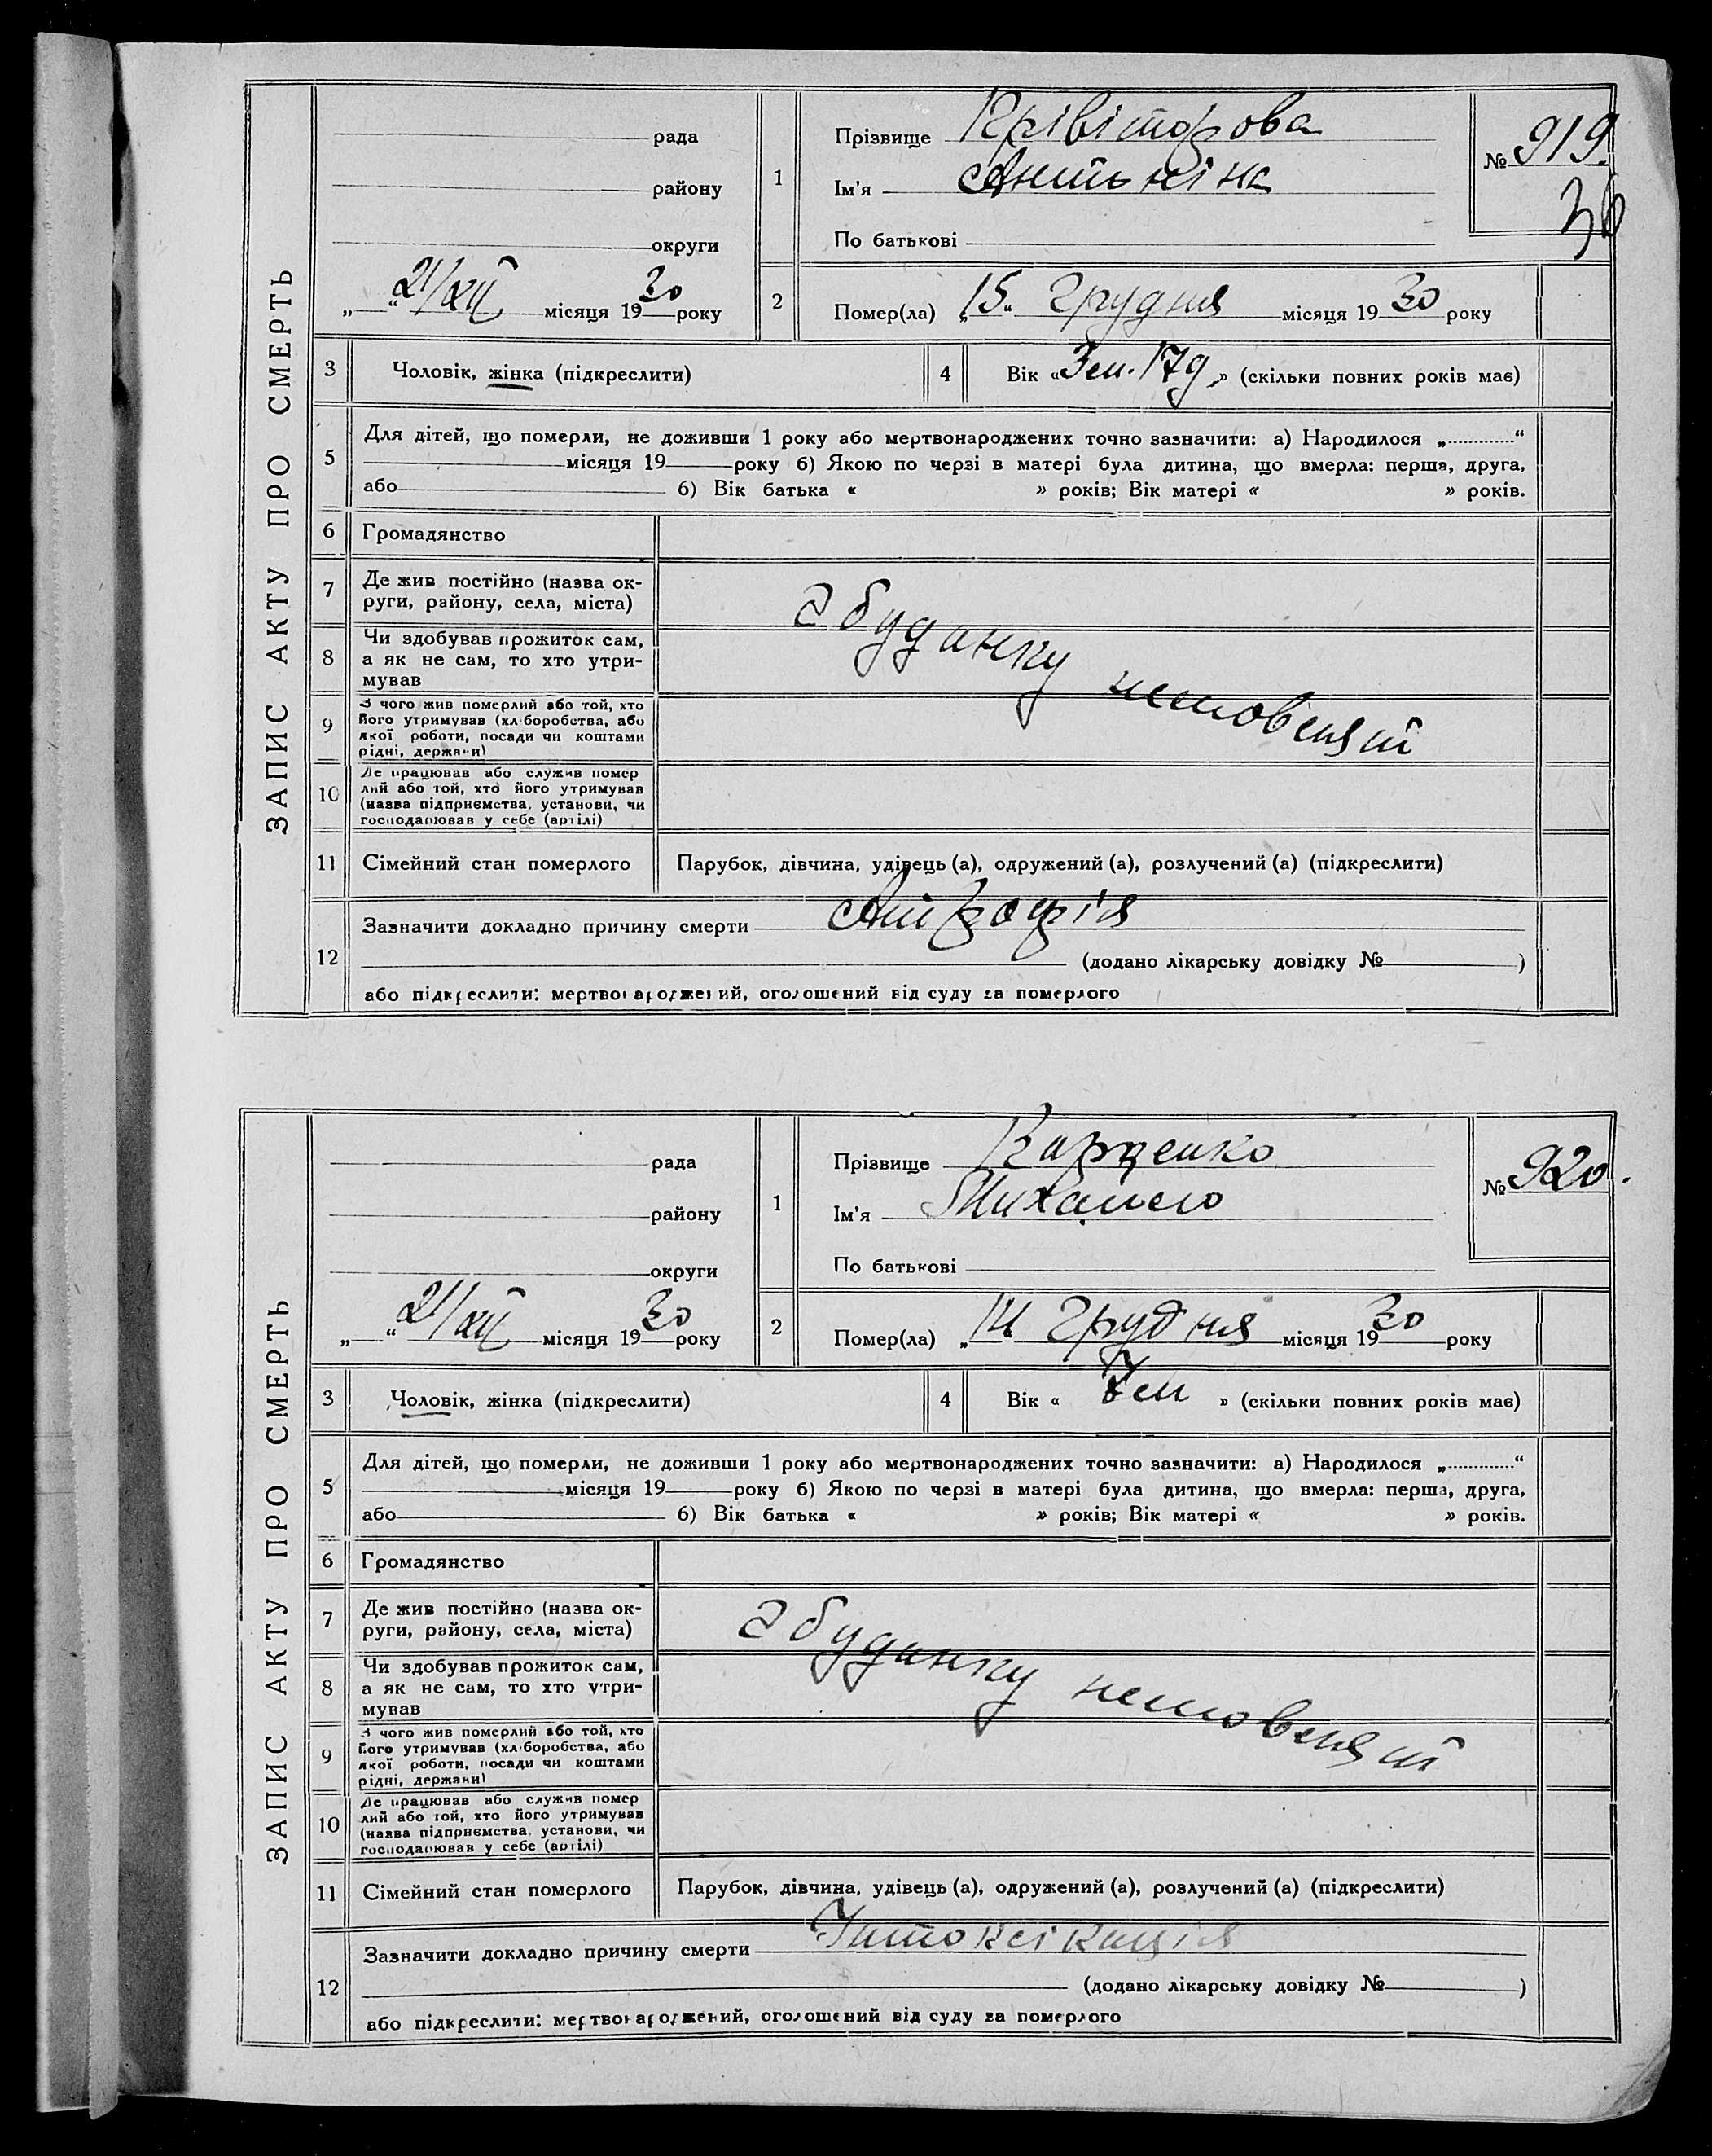 ЗАПИС АКТУ ПРО СМЕРТЬ
рада
району
округи
„ “ 21/XII місяця 1930 року
1
Прізвище Крівіторова
Ім'я Антоніна
По батькові
№ 919.
36
2
Помер(ла) „15“ Грудня місяця 1930 року
3 Чоловік, жінка (підкреслити)
4 Вік «3 м. 17 д.» (скільки повних років має)
5
Для дітей, що померли, не доживши 1 року або мертвонароджених точно зазначити: а) Народилося „ “
місяця 19 року б) Якою по черзі в матері була дитина, що вмерла: перша, друга,
або б) Вік батька « » років; Вік матері « » років.
6 Громадянство
7 Де жив постійно (назва ок-
руги, району, села, міста)
З будинку немовлят
8 Чи здобував прожиток сам,
а як не сам, то хто утри-
мував
9 З чого жив померлий або той, хто
його утримував (хліборобства, або
якої роботи, посади чи коштами
рідні, держави)
10 Де працював або служив помер
лий або той, хто його утримував
(назва підприємства, установи, чи
господарював у себе (артілі)
11 Сімейний стан померлого
Парубок, дівчина, удівець (а), одружений (а), розлучений (а) (підкреслити)
12
Зазначити докладно причину смерти Атрофія
(додано лікарську довідку № )
або підкреслити: мертвонароджений, оголошений від суду за померлого
ЗАПИС АКТУ ПРО СМЕРТЬ
рада
району
округи
„ “ 21/XII місяця 1930 року
1
Прізвище
Ім'я Михайло
По батькові
№ 920.
2
Помер(ла) „14 Грудня місяця 1930 року
3 Чоловік, жінка (підкреслити)
4 Вік « 7 м » (скільки повних років має)
5
Для дітей, що померли, не доживши 1 року або мертвонароджених точно зазначити: а) Народилося „ “
місяця 19 року б) Якою по черзі в матері була дитина, що вмерла: перша, друга,
або б) Вік батька « » років; Вік матері « » років.
6 Громадянство
7 Де жив постійно (назва ок-
руги, району, села, міста)
З будинку немовлят
8 Чи здобував прожиток сам,
а як не сам, то хто утри-
мував
9 З чого жив померлий або той, хто
його утримував (хліборобства, або
якої роботи, посади чи коштами
рідні, держави)
10 Де працював або служив помер
лий або той, хто його утримував
(назва підприємства, установи, чи
господарював у себе (артілі)
11 Сімейний стан померлого
Парубок, дівчина, удівець (а), одружений (а), розлучений (а) (підкреслити)
12
Зазначити докладно причину смерти Інтоксікація
(додано лікарську довідку № )
або підкреслити: мертвонароджений, оголошений від суду за померлого